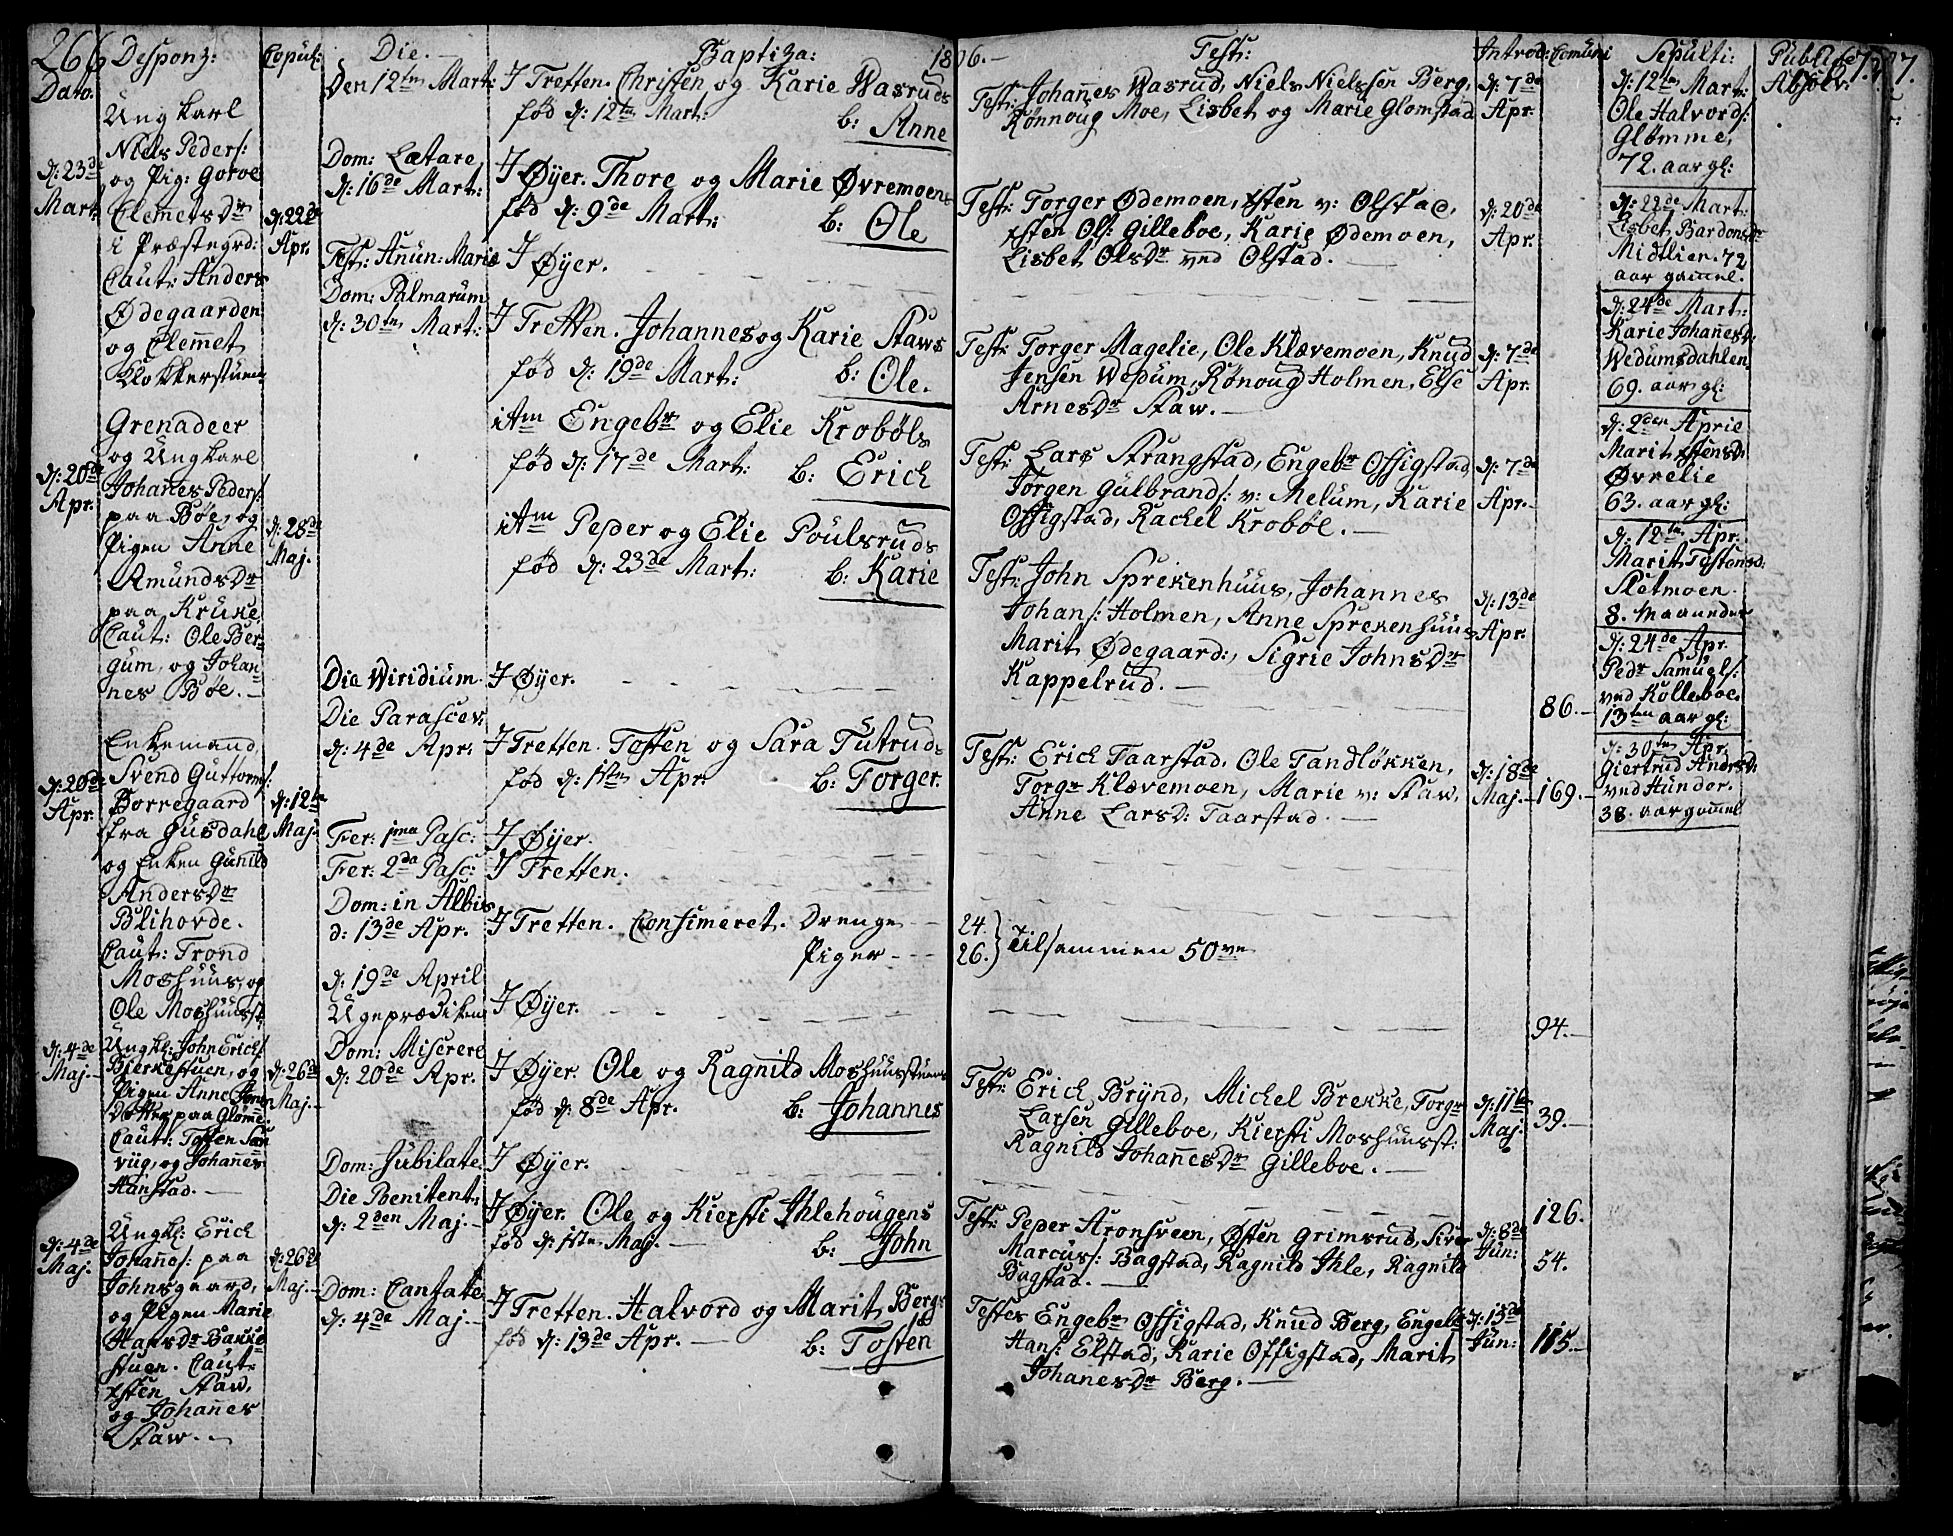 266 Desponz: Copul: Die. Baptiza: 1806. Test: Introd: Comuni Sepulti: Public:
Dato.
Absolv:
Ung karl
Niels Peders:
og Pig: Goroe
Clemetsdr
i Præstegrd:
Caut: Anders
Ødegaarden
og Clemet
Klokkerstuen
d: 23de
Mart:
d: 22de
Apr.
Grenadeer
og Ungkarl
Johanes Peders:
paa Bøe, og
Pigen Anne
Amundsdr
paa Kruke,
Caut: Ole Ber-
gum, og Johan-
nes Bøe.
d: 20de
Apr.
d: 28de
Maj.
Enkemand
Svend Guttorms:
Borregaard
fra Gusdahl
og Enken Gunild
Andersdr
Blihovde.
Caut: Trond
Moshuus, og
Ole Moshuusst
d: 20de
Apr.
d: 12te
Maj.
Ungk: John Erichs:
Bierkestuen, og
Pigen Anne
Datter paa Glome.
Caut: Tosten
og Johanes
Hanstad.
d: 4de
Maj.
d: 26de
Maj.
Ungk: Erich
Johanes: paa
Johnsgaard,
og Pigen Marie
Hansdr Bakke
stuen. Caut:
Østen Staw,
og Johanes
Staw.
d: 4de
Maj.
d: 26de
Maj.
Den 12te Mart: I Tretten. Christen og Karie Wasruds
fød d: 12te Mart: b: Anne
Dom: Lætare
d: 16de Mart: I Øyer. Thore og Marie Øvremoens
fød d: 9de Mart: b: Ole
Fest: Anun: Mariæ I Øyer.
Dom: Palmarum
d: 30te Mart: I Tretten. Johannes og Karie Staws
fød d: 19de Mart: b: Ole.
itm Engebr og Elie Krobøls
fød d: 17de Mart: b: Erich
itm Peder og Elie Poulsruds
fød d: 23de Mart: b: Karie
Die Viridium. I Øyer.
Die Parascev:
d: 4de Apr. I Tretten. Tosten og Sara Tutruds
fød d: 1ste Apr. b: Torger.
Fer: 1ma Pasc: I Øyer.
Fer: 2da Pasc: I Tretten.
Dom: in Albis
d: 13de Apr. I Tretten. Confirmeret. Drenge
Piger
d: 19de April
Ugeprædiken I Øyer.
Dom: Miserere
d: 20de Apr. I Øyer. Ole og Ragnild Moshuusstuens
fød d: 8de Apr. b: Johannes
Dom: Jubilate. I Øyer.
Die Poenitent:
d: 2den Maj. I Øyer. Ole og Kiersti Ihlehougens
fød d: 1ste Maj. b: John
Dom: Cantate
d: 4de Maj. I Tretten. Halvord og Marit Bergs
fød d: 13de Apr. b: Tosten
Test: Johanes Wasrud, Niels Nielssen Berg,
Ronnoug Moe, Lisbet og Marie Glomstad
d: 7de
Apr.
Test: Torger Ødemoen, Østen v: Olstad,
Østen Ols: Gilleboe, Karie Ødemoen,
Lisbet Olsdr ved Olstad.
d: 20de
Apr.
Test: Torger Magelie, Ole Klævemoen, Knud
Jensen Wedum, Rønoug Holmen, Else
Arnesdr Staw.
d: 7de
Apr.
Test: Lars Strangstad, Engebr Offigstad
Jørgen Gulbrands: v: Melum, Karie
Offigstad, Rachel Krobøl.
d: 7de
Apr.
Test: John Sprekenhuus, Johannes
Johans: Holmen, Anne Sprekenhuus
Marit Ødegaard:, Sigrie Johnsdr
Kappelrud.
d: 13de
Apr.
86.
Test: Erich Taarstad, Ole Tandløkken,
Torgr Klævemoen, Marie v: Staw,
Anne Larsd: Taarstad.
d: 18de
Maj.
169.
24.
26. } Tilsammen 50ve
94.
Test: Erich Brynd, Michel Brekke, Torgr
Larsen Gilleboe, Kiersti Moshuusst.
Ragnild Johannesdr Gilleboe.
d: 11te
Maj.
39.
126.
Test: Peder Aronsveen, Østen Grimsrud, Siver
Marcus: Bagstad, Ragnild Ihle, Ragnild
Bagstad.
d: 8de
Jun:
54.
Testes Engebr Offigstad, Knud Berg, Engebr
Hans: Elstad, Karie Offigstad, Marit
Johanesdr Berg.
d: 15de
Jun:
115.
d: 12te Mart:
Ole Halvords:
Glomme,
72. aar gl:
d: 22de Mart:
Lisbet Bardonsdr
Midtlien. 72
aar gamel.
d: 24de Mart:
Karie Johanesd:
Wedumsdahlen
69. aar gl:
d: 2den April
Marit Østensd:
Øvrelie
63. aar gl:
d: 12te Apr.
Marit Tostensd:
Sletmoen
8. Maaneder
d: 24de Apr.
Pedr Samuels:
ved Kolleboe
13ten aar gl:
d: 30te Apr.
Giertrud Andersd:
ved Hundor.
38. aar gamel